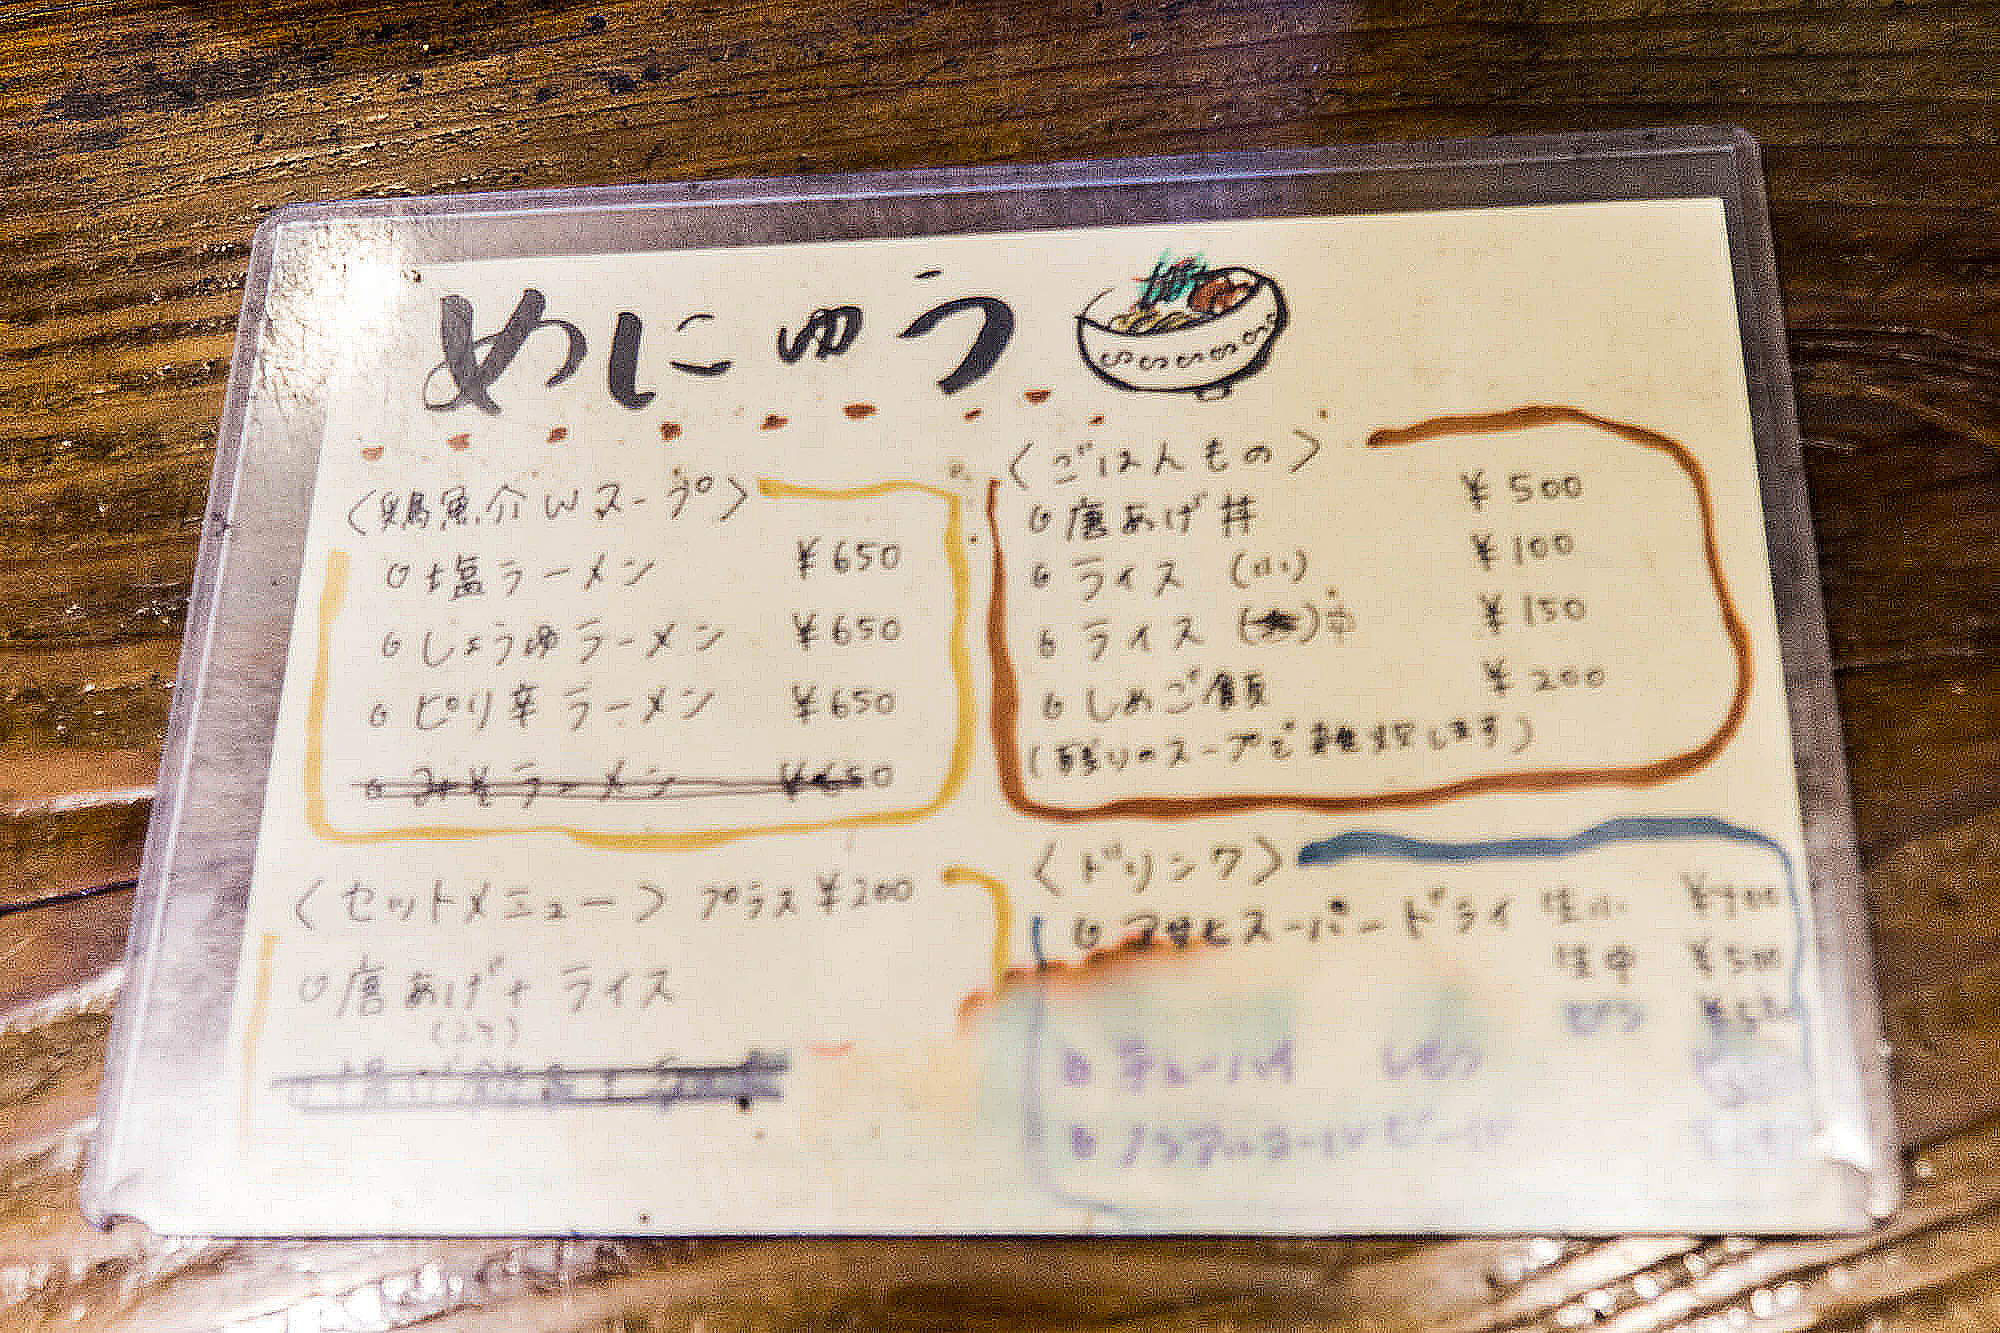 めにゅう
〈鶏魚介Wスープ〉
塩ラーメン ¥650
しょうゆラーメン ¥650
ピリ辛ラーメン ¥650
みそラーメン ¥650
〈セットメニュー〉 プラス¥200
唐あげ+ライス
(2ケ)
〈ごはんもの〉
唐あげ丼 ¥500
ライス (小) ¥100
ライス 中 ¥150
しめご飯 ¥200
(残りのスープで雑炊します)
〈ドリンク〉
アサヒスーパードライ 生小 ¥400
生中
ビン
チューハイ レモン
ノンアルコールビール